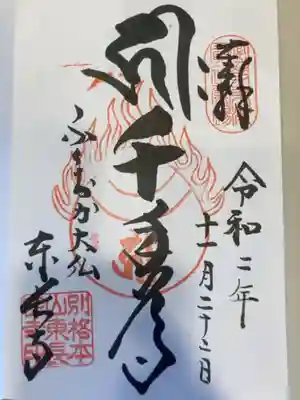 奉拝
令和二年
十一月二十二日
千手観音
ふくおか大仏
東長寺
別格本
山東長
寺印